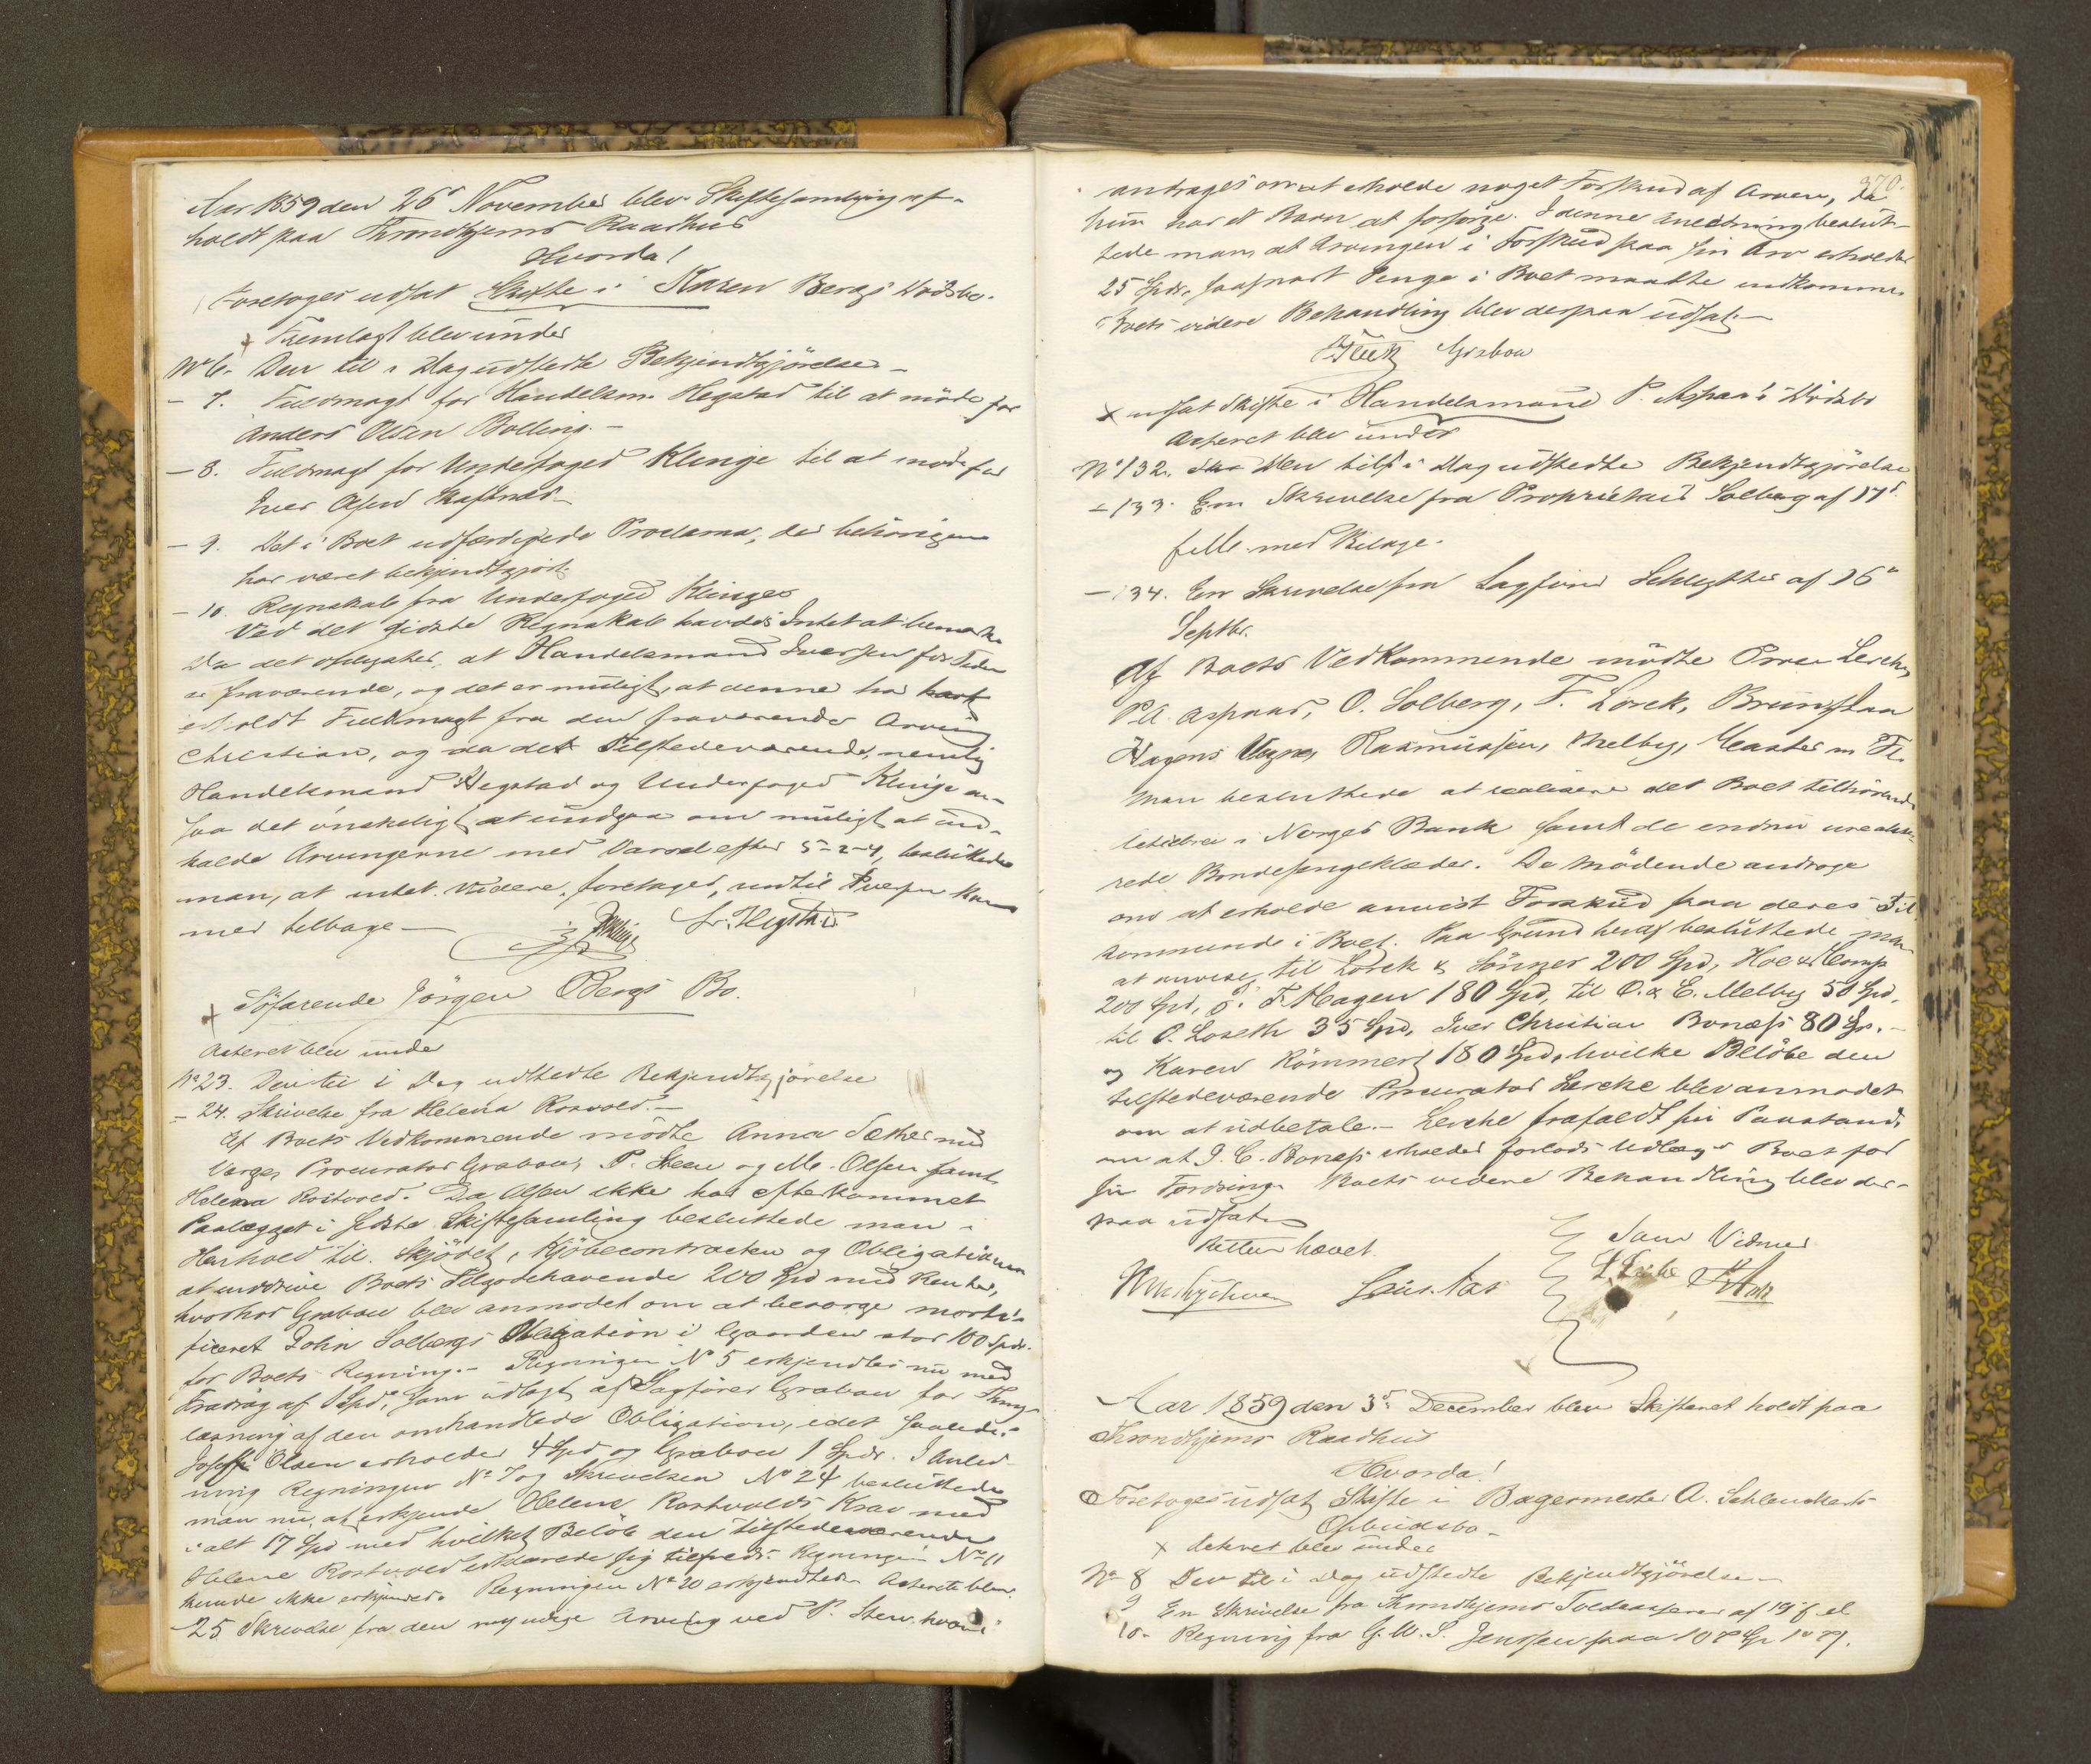 Aar 1859 den 26d November blev Skiftesamling af-
holdt paa Throndhjems Raadhus
Hvorda!
Foretoges udsat Skifte i Karen Bergs Dødsbo.
+ Fremlagt blev under
No 6. Den til i Dag udstedte Bekjendtgjörelse –
– 7. Fuldmagt for Handelsm. Hegstad til at möde for
Anders Olsen Bolling. –
– 8. Fuldmagt for Underfoged Klinge til at möde for
Iver Olsen
– 9. Det i Boet udfærdigede Proclama, der behörigen
har været bekjendtgjort.
– 10. Regnskab fra Underfoged Klinge
Ved det sidste Regnskab havdes Intet at bemærke
Da det oplystes, at Handelsmand Iversen for Tiden
er fraværende, og det er muligt, at denne har
erholdt Fuldmagt fra den fraværende Arving
Christian, og da det Tilstedeværende, nemlig
Handelsmand Hegstad og Underfoged Klinge an-
saa det önskeligt at undgaa om muligt at ind-
kalde Arvingerne med Varsel efter 5-2-4, besluttede
man, at intet videre foretages, indtil Iversen kom
mer tilbage –
Klinge L. Hegstad
+ Söfarende Jörgen Bergs Bo.
Acteret blev under
No 23. Den til i Dag udstedte Bekjendtgjörelse
– 24. Skrivelse fra Helena Rosvold. –
Af Boets Vedkommende mödte Anna Sæther med
Værge, Procurator Grabow, P. Steen og M. Olsen samt
Helena Rostvold. Da Olsen ikke har efterkommet
Paalægget i sidste Skiftesamling besluttede man i
Henhold til Skjödet, Kjöbecontracten og Obligationen
at inddrive Boets Tilgodehavende 200 Spd med Renter,
hvorhos Grabow blev anmodet om at besörge morti-
ficeret John Solbergs Obligation i Gaarden stor 100 Spd.
for Boets Regning. – Regningen No 5 erkjendtes nu med
Fradrag af 1 Spd, som udlagt af Sagförer Grabow for Thing-
læsning af den omhandlede Obligation, idet saaledes
Olsen erholder 4 Spd og Grabow 1 Spd. I Anled-
ning Regningen No 7 og Skrivelsen No 24 besluttede
man nu at erkjende Helene Rostvolds Krav med
ialt 17 Spd med hvilket Belöb den tilstedeværende
Helene Rostvold erklærede sig tilfreds. Regningen No 11
kunde ikke erkjendes. Regningen No 20 erkjendtes. Acteret blev
25 Skrivelse fra den myndige Arving ved P. Steen hvori
370.
andrages om at erholde noget Forskud af Arven, da
hun har et Barn at forsörge. I denne Anledning beslut-
tede man, at Arvingen i Forskud paa sin Arv erholder
25 Spd, saasnart Penge i Boet maatte indkomme.
Boets videre Behandling blev derpaa udsat. –
Grabow
x udsat Skifte i Handelsmand P. Aspaas Dödsbo
Acteret blev under
No 132. Den til i Dag udstedte Bekjendtgjörelse
– 133. En Skrivelse fra Proprietair Solberg af 17d
med Bilage.
– 134. En Skrivelse fra Sagförer Schlytter af 26d
Septbr.
Af Boets Vedkommende mödte Lerche,
P.A. Aspaas, O. Solberg, F. Lorck, Bruun paa
Hagens Vegne, Rasmussen, Melby,
Man besluttede at realisere det Boet tilhörende
i Norges Bank samt de endnu ureali-
rede Bondesengeklæder. De Mödende androge
om at erholde anvist Forskud paa deres Til
kommende i Boet. Paa Grund heraf besluttede man
at anvise til Lorck & Sönner 200 Spd, Hoe & Comp
200 Spd, F. Hagen 180 Spd, til O. & E. Melby 50 Spd,
til O. Loseth 35 Spd, Iver Christian Bonæss 80 Sp. –
og Karen Römmen 180 Spd, hvilke Belöbe den
tilstedeværende Procurator Lerche blev anmodet
om at udbetale. – Lerche frafaldt sin Paastand
om at I. C. Bonæss erholder forlods Udlæg i Boet for
sin Fordring. Boets videre Behandling blev der-
paa udsat.
Retten hævet.
Som Vidner
Aar 1859 den 3d December blev Skifteret holdt paa
Throndhjems Raadhus
Hvorda!
Foretoges udsat Skifte i Bagermester A. Schlenckerts
Opbudsbo –
x Acteret blev under
No 8 Den til i Dag udstedte Bekjendtgjörelse –
9 En Skrivelse fra Throndhjems Toldkasserer af 19
10. Regning fra G. W. S. Jenssen paa